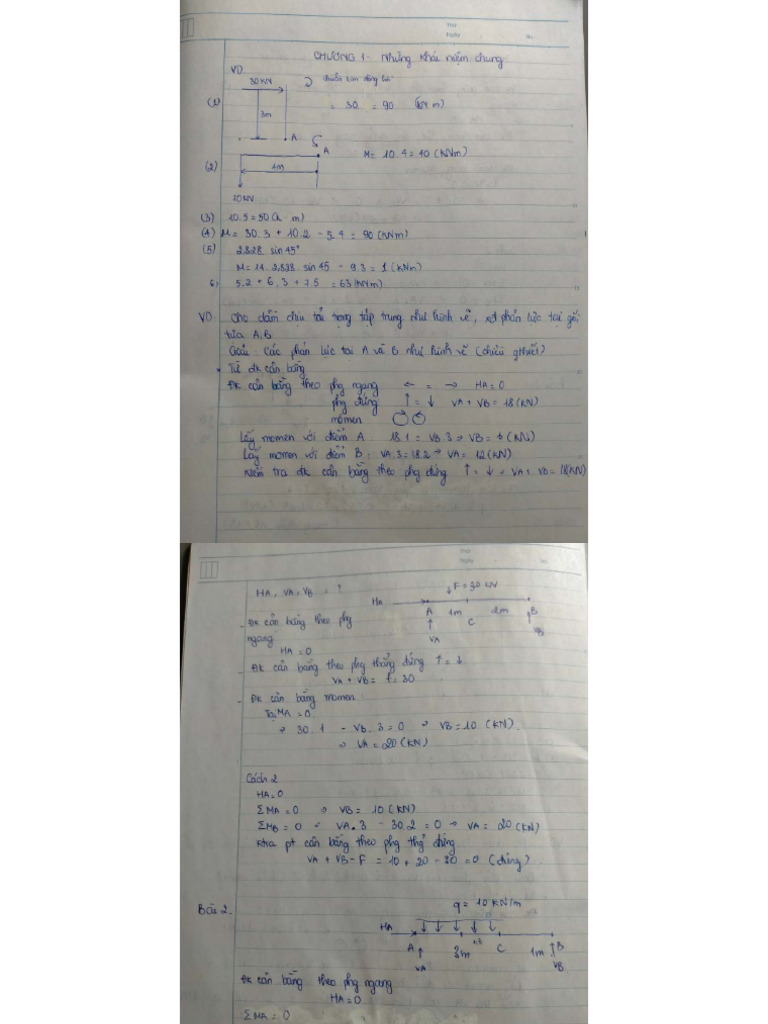 Thứ
Ngày
No.
CHƯƠNG 1 - Những khái niệm chung
VD
30 KN
(1)
3m
= 30 = 90 (KN m)
A
A
M = 10.4 = 40 (KNm)
(2)
4m
10 KN
(3) 10.5 = 50 (k m)
(4) M = 30.3 + 10.2 - 5.4 = 90 (KNm)
(5) 2,828. sin 45°
M = 14. 2,828. sin 45 - 9.3 = 1 (KNm)
6) 5.2 + 6.3 + 7.5 = 63 (KNm)
VD. Cho dầm chịu tải trọng tập trung như hình vẽ, xđ phản lực tại gối
tựa A,B
Giải: Các phản lực tại A và B như hình vẽ (chiều gthiết)
Từ đk cân bằng
Đk cân bằng theo phg ngang ← = → HA = 0
phg đứng ↑ = ↓ VA + VB = 18 (KN)
momen
Lấy momen với điểm A 18.1 = VB.3 → VB = 6 (KN)
Lấy momen với điểm B: VA.3 = 18.2 → VA = 12 (KN)
Kiểm tra đk cân bằng theo phg đứng ↑ = ↓ → VA + VB = 18 (KN)
Thứ
Ngày
No.
HA, VA, VB = ?
↓ F = 30 KN
HA
A 1m 2m B
C
VA
VB
- Đk cân bằng theo phg
ngang
HA = 0
- Đk cân bằng theo phg thẳng đứng ↑ = ↓
VA + VB = F = 30
- Đk cân bằng momen:
Tại MA = 0
→ 30.1 - VB.3 = 0 → VB = 10 (KN).
→ VA = 20 (KN)
Cách 2
HA = 0
ΣMA = 0 → VB = 10 (KN)
ΣMB = 0 → VA.3 - 30.2 = 0 → VA = 20 (KN)
Ktra pt cân bằng theo phg thg đứng
VA + VB - F = 10 + 20 - 30 = 0 (đúng)
Bài 2.
q = 10 KN/m
HA
A 3m C 1m B
VA
VB
Đk cân bằng theo phg ngang
HA = 0
ΣMA = 0